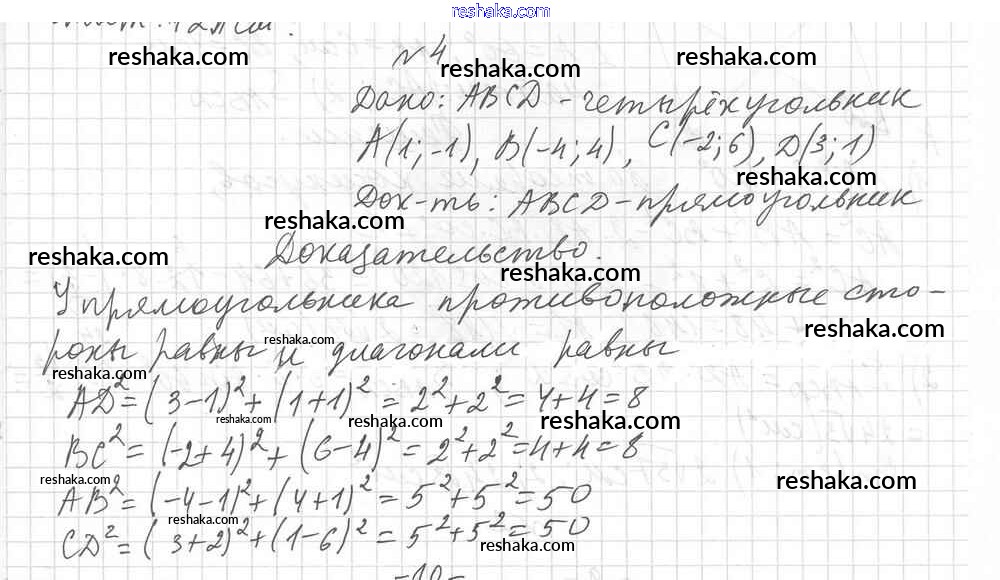 reshaka.com
reshaka.com
reshaka.com
reshaka.com
№4
Дано: ABCD - четырёхугольник
A(1;-1), B(-4;4), C(-2;6), D(3;1)
reshaka.com
Док-ть: ABCD - прямоугольник
reshaka.com
Доказательство.
reshaka.com
reshaka.com
У прямоугольника противоположные сто-
reshaka.com
роны равны и диагонали равны
reshaka.com
reshaka.com
AD²=(3-1)²+(1+1)²=2²+2²=4+4=8
reshaka.com
reshaka.com
BC²=(-2+4)²+(6-4)²=2²+2²=4+4=8
reshaka.com
reshaka.com
AB²=(-4-1)²+(4+1)²=5²+5²=50
reshaka.com
CD²=(3+2)²+(1-6)²=5²+5²=50
reshaka.com
-10-